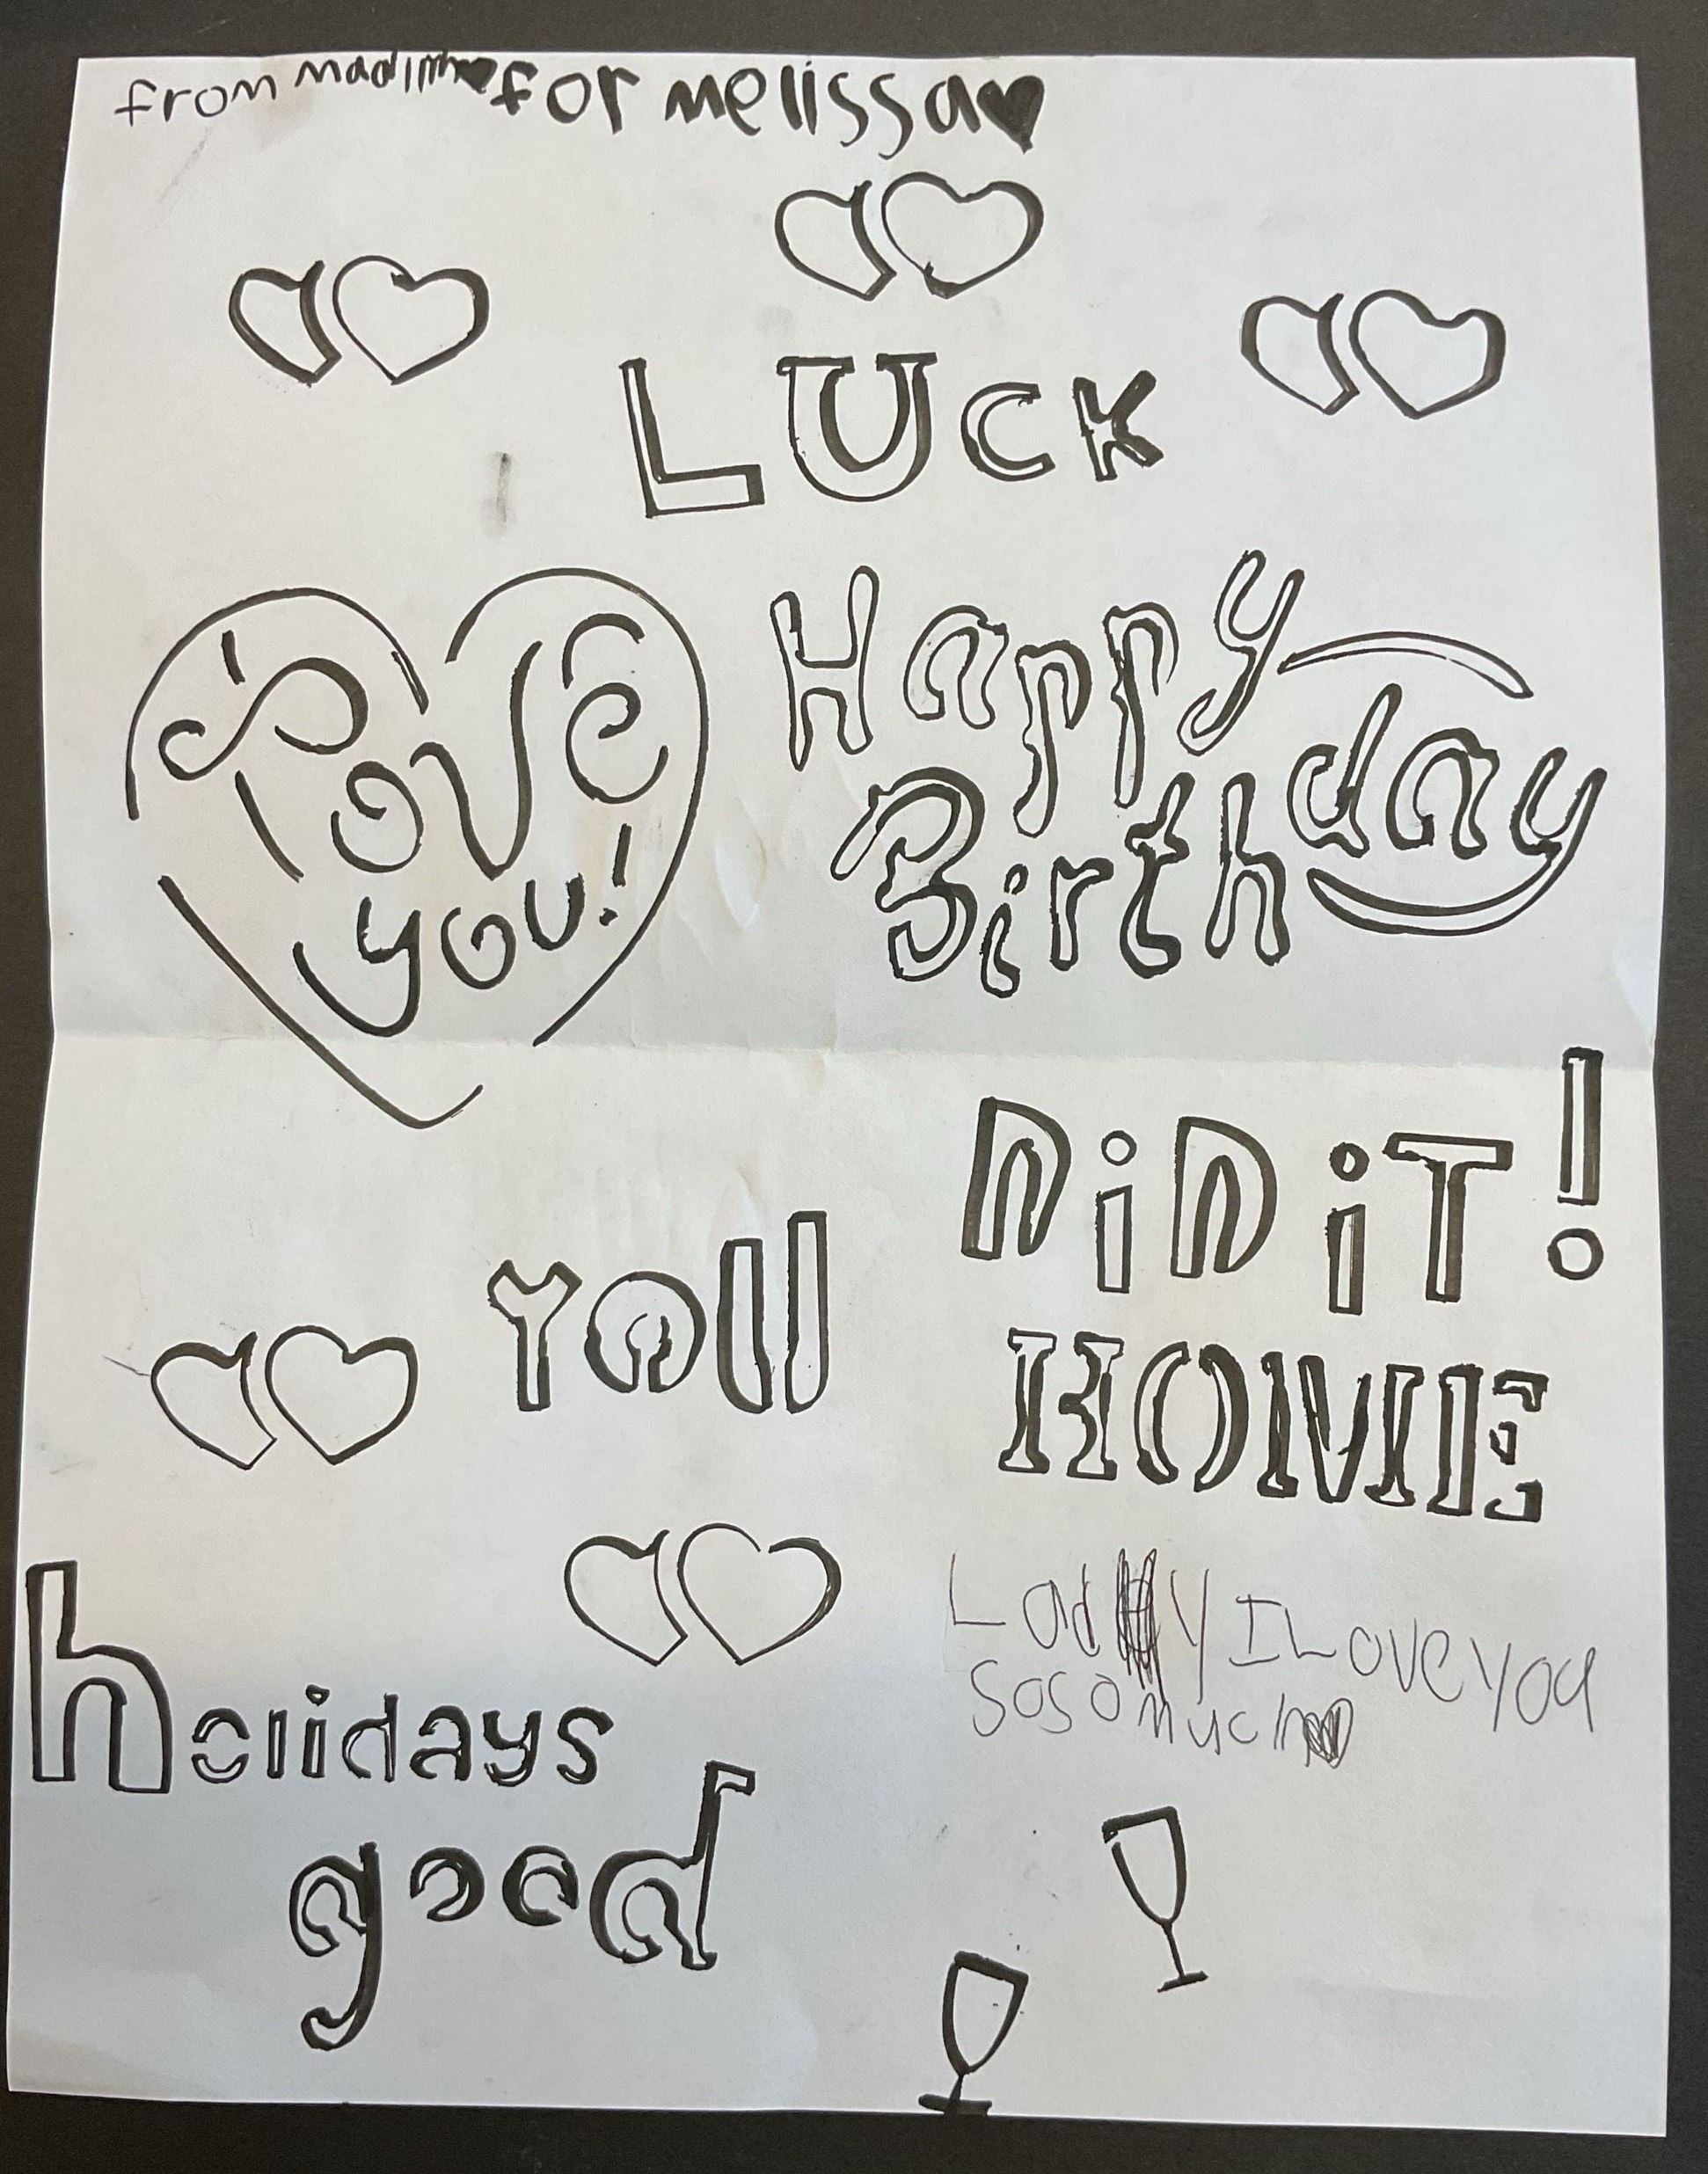 from madina for melissa
LUCK
I Love
you!
Happy
Birthday
DiD iT!
YOU
HOME
Lady I Love you
so so much
holidays
good